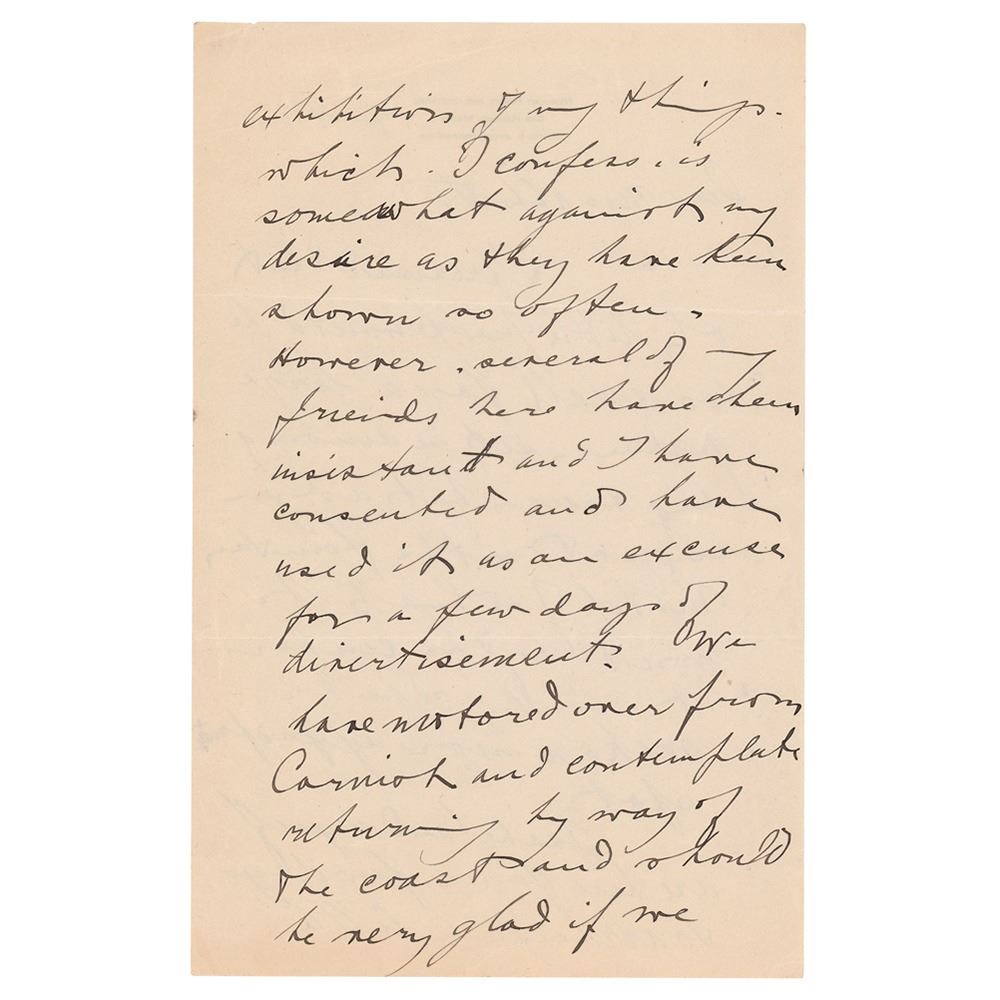 exhibition of my things.
which. I confess. is
somewhat against my
desire as they have been
shown so often.
However. several of my
friends here have been
insistant and I have
consented and have
used it as an excuse
for a few days of
divertisement. We
have motored over from
Cornish and contemplate
returning by way of
the coast and should
be very glad if we